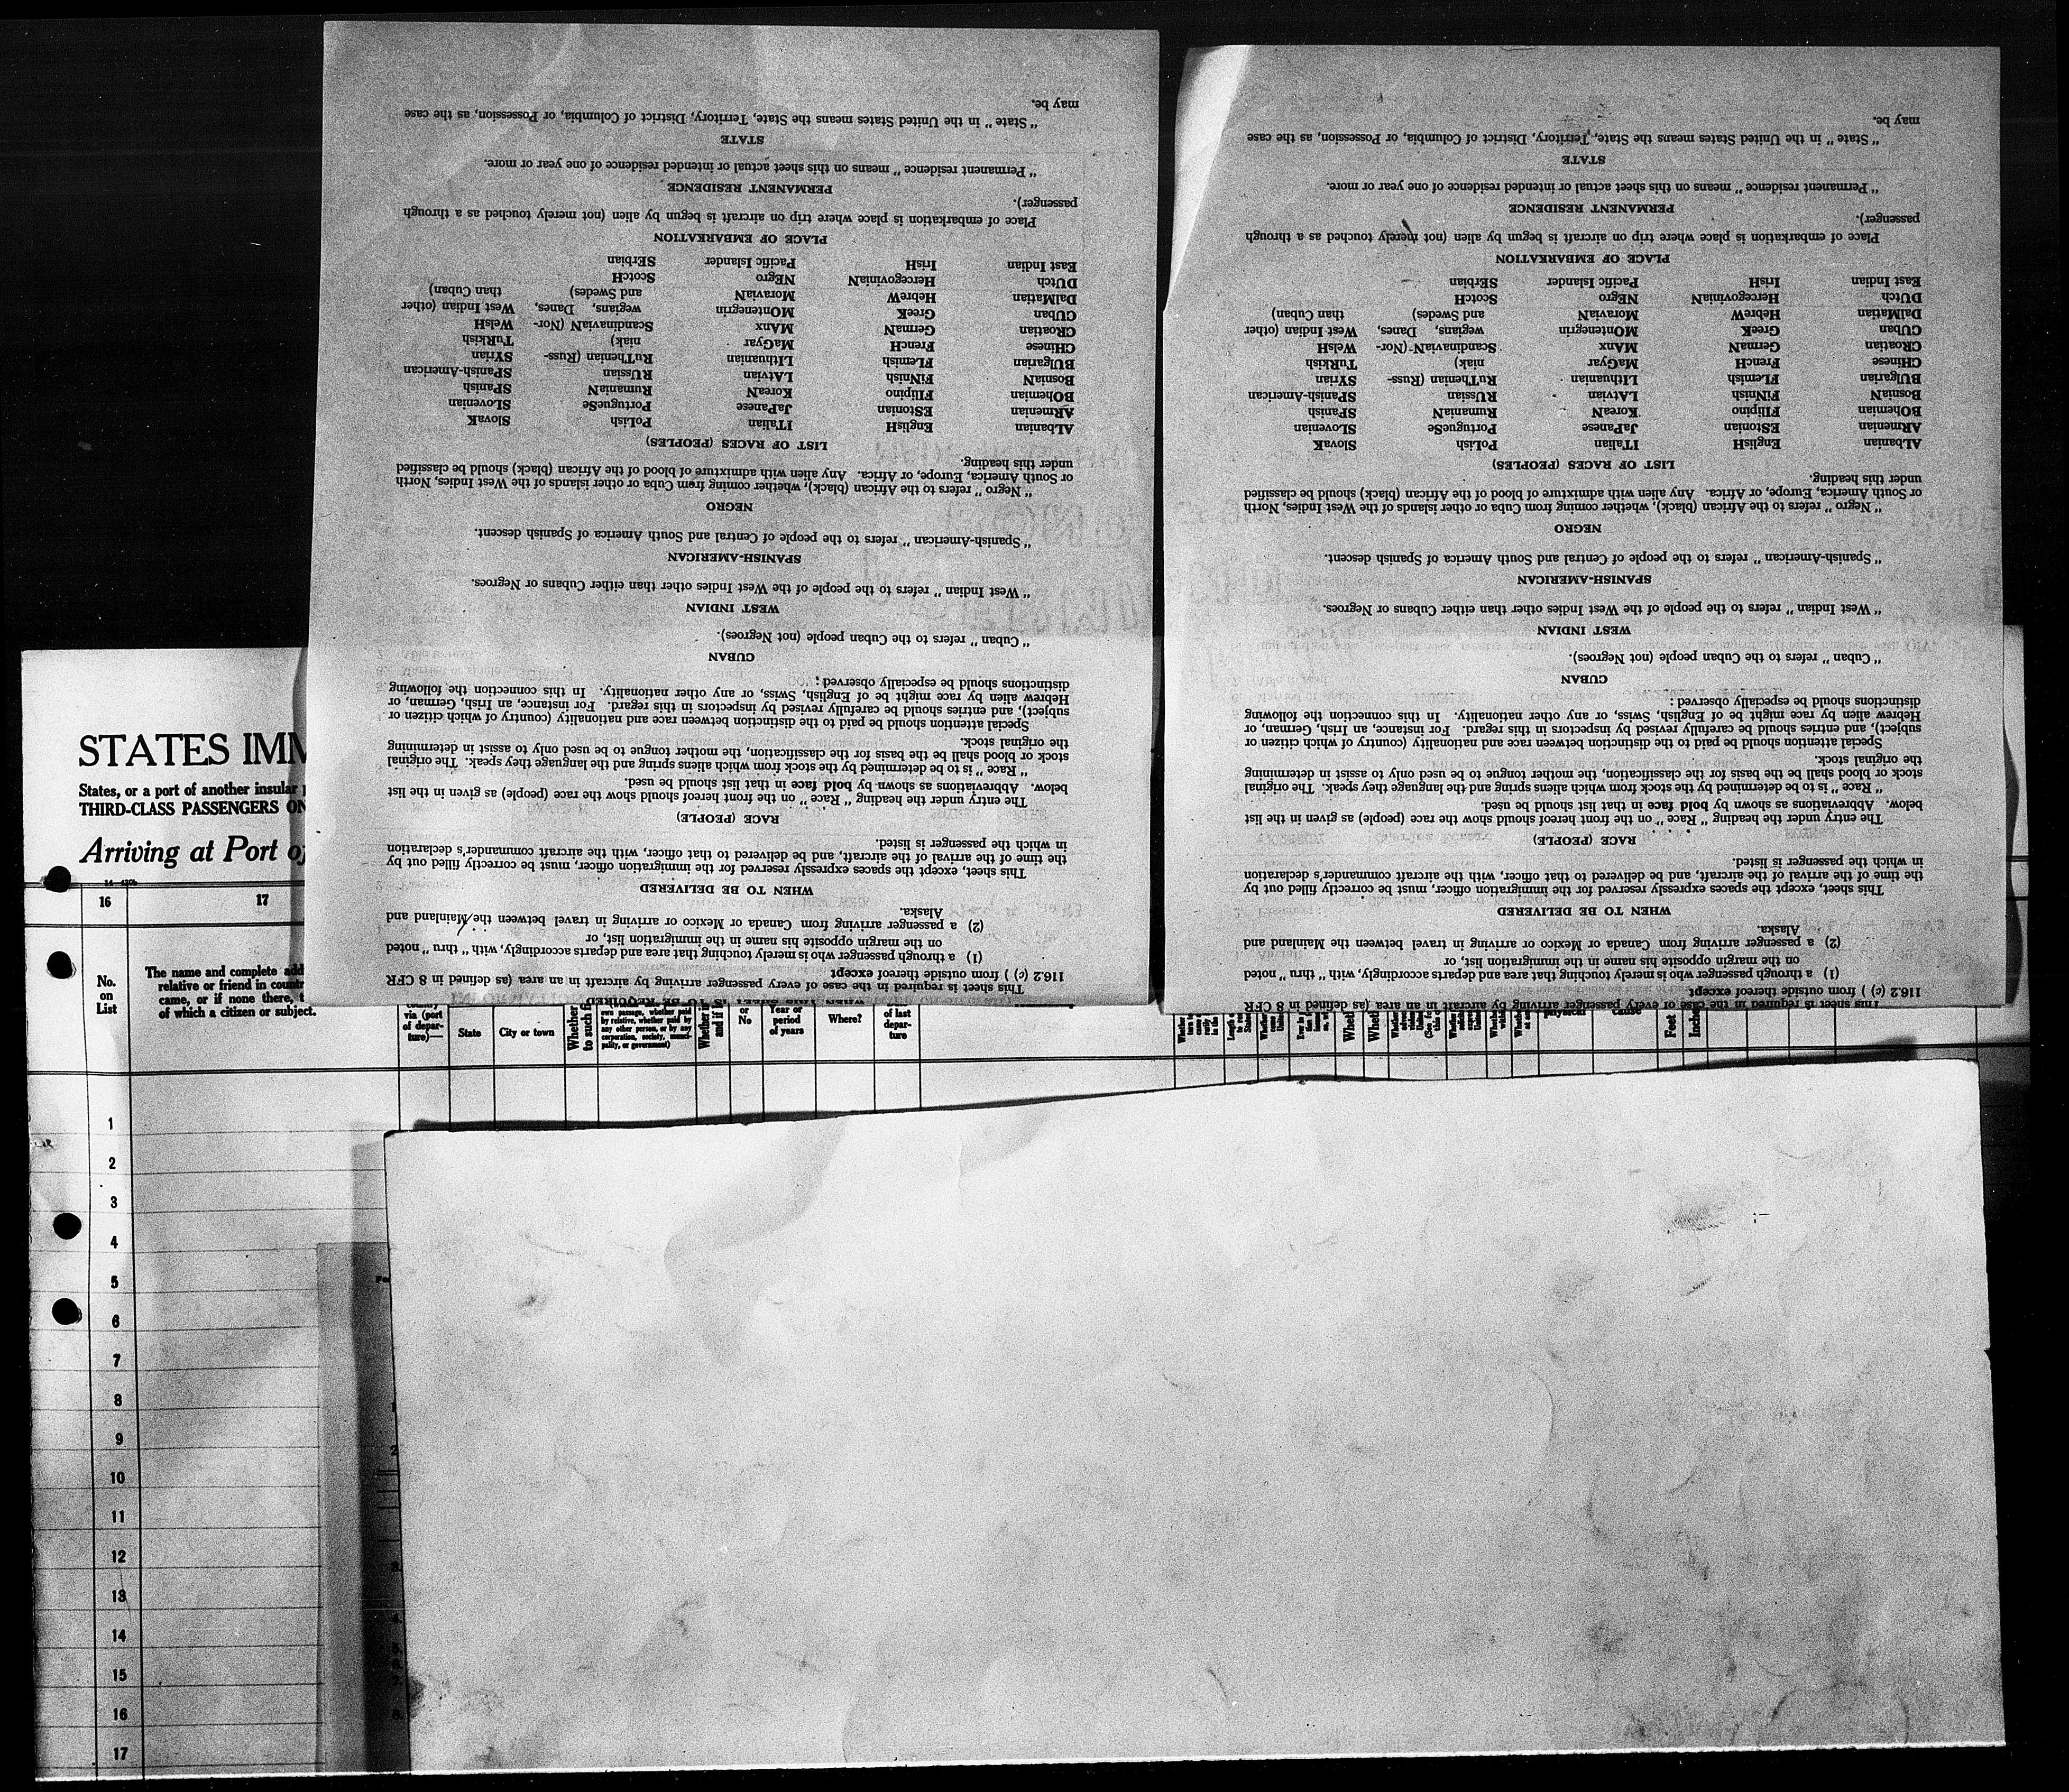 This sheet is required in the case of every passenger arriving by aircraft in an area (as defined in 8 CFR
116.2 (c) ) from outside thereof except
(1) a through passenger who is merely touching that area and departs accordingly, with "thru" noted
on the margin opposite his name in the immigration list, or
(2) a passenger arriving from Canada or Mexico or arriving in travel between the Mainland and
Alaska.
WHEN TO BE DELIVERED
This sheet, except the spaces expressly reserved for the immigration officer, must be correctly filled out by
the time of the arrival of the aircraft, and be delivered to that officer, with the aircraft commander's declaration
in which the passenger is listed.
RACE (PEOPLE)
The entry under the heading "Race" on the front hereof should show the race (people) as given in the list
below. Abbreviations as shown by bold face in that list should be used.
"Race" is to be determined by the stock from which aliens spring and the language they speak. The original
stock or blood shall be the basis for the classification, the mother tongue to be used only to assist in determining
the original stock.
Special attention should be paid to the distinction between race and nationality (country of which citizen or
subject), and entries should be carefully revised by inspectors in this regard. For instance, an Irish, German, or
Hebrew alien by race might be of English, Swiss, or any other nationality. In this connection the following
distinctions should be especially observed:
CUBAN
"Cuban" refers to the Cuban people (not Negroes).
WEST INDIAN
"West Indian" refers to the people of the West Indies other than either Cubans or Negroes.
SPANISH-AMERICAN
"Spanish-American" refers to the people of Central and South America of Spanish descent.
NEGRO
"Negro" refers to the African (black), whether coming from Cuba or other islands of the West Indies, North
or South America, Europe, or Africa. Any alien with admixture of blood of the African (black) should be classified
under this heading.
LIST OF RACES (PEOPLES)
ALbanian EnglisH ITalian PoLish SlovaK
ARmenian EStonian JaPanese PortugueSe SLovenian
BOhemian FIlipino KoreaN RumaniaN SPanish
BosniaN FiNnish LAtvian RUssian SPanish-American
BUlgarian FLemish LIthuanian RuThenian (Russ- SYrian
CHinese FrencH MaGyar niak) TuRkish
CRoatian GermaN MAnx ScandinaviaN (Nor- WelsH
CUban GreeK MOntenegrin wegians, Danes, West Indian (other
DalMatian HebreW MoraviaN and Swedes) than Cuban)
DUtch HercegoviniaN NEgro ScotcH
East Indian IrisH Pacific Islander SErbian
PLACE OF EMBARKATION
Place of embarkation is place where trip on aircraft is begun by alien (not merely touched as a through
passenger).
PERMANENT RESIDENCE
"Permanent residence" means on this sheet actual or intended residence of one year or more.
STATE
"State" in the United States means the State, Territory, District of Columbia, or Possession, as the case
may be.
This sheet is required in the case of every passenger arriving by aircraft in an area (as defined in 8 CFR
116.2 (c) ) from outside thereof except
(1) a through passenger who is merely touching that area and departs accordingly, with "thru" noted
on the margin opposite his name in the immigration list, or
(2) a passenger arriving from Canada or Mexico or arriving in travel between the Mainland and
Alaska.
WHEN TO BE DELIVERED
This sheet, except the spaces expressly reserved for the immigration officer, must be correctly filled out by
the time of the arrival of the aircraft, and be delivered to that officer, with the aircraft commander's declaration
in which the passenger is listed.
RACE (PEOPLE)
The entry under the heading "Race" on the front hereof should show the race (people) as given in the list
below. Abbreviations as shown by bold face in that list should be used.
"Race" is to be determined by the stock from which aliens spring and the language they speak. The original
stock or blood shall be the basis for the classification, the mother tongue to be used only to assist in determining
the original stock.
Special attention should be paid to the distinction between race and nationality (country of which citizen or
subject), and entries should be carefully revised by inspectors in this regard. For instance, an Irish, German, or
Hebrew alien by race might be of English, Swiss, or any other nationality. In this connection the following
distinctions should be especially observed:
CUBAN
"Cuban" refers to the Cuban people (not Negroes).
WEST INDIAN
"West Indian" refers to the people of the West Indies other than either Cubans or Negroes.
SPANISH-AMERICAN
"Spanish-American" refers to the people of Central and South America of Spanish descent.
NEGRO
"Negro" refers to the African (black), whether coming from Cuba or other islands of the West Indies, North
or South America, Europe, or Africa. Any alien with admixture of blood of the African (black) should be classified
under this heading.
LIST OF RACES (PEOPLES)
ALbanian EnglisH ITalian PoLish SlovaK
ARmenian EStonian JaPanese PortugueSe SLovenian
BOhemian FIlipino KoreaN RumaniaN SPanish
BosniaN FiNnish LAtvian RUssian SPanish-American
BUlgarian FLemish LIthuanian RuThenian (Russ- SYrian
CHinese FrencH MaGyar niak) TuRkish
CRoatian GermaN MAnx ScandinaviaN (Nor- WelsH
CUban GreeK MOntenegrin wegians, Danes, West Indian (other
DalMatian HebreW MoraviaN and Swedes) than Cuban)
DUtch HercegoviniaN NEgro ScotcH
East Indian IrisH Pacific Islander SErbian
PLACE OF EMBARKATION
Place of embarkation is place where trip on aircraft is begun by alien (not merely touched as a through
passenger).
PERMANENT RESIDENCE
"Permanent residence" means on this sheet actual or intended residence of one year or more.
STATE
"State" in the United States means the State, Territory, District of Columbia, or Possession, as the case
may be.
STATES IMM
States, or a port of another insular
THIRD-CLASS PASSENGERS ON
Arriving at Port of
16 17
No.
on
List
The name and complete add
relative or friend in countr
came, or if none there, t
of which a citizen or subject.
via (port
of depar-
ture)—
State
City or town
Whether
to such
own passage, whether paid
by relative, whether paid by
any other person, or by any
corporation, society, munici-
pality, or government)
Whether
and if
or
No
Year or
period
of years
Where?
of last
depar-
ture
Feet
1
2
3
4
5
6
7
8
9
10
11
12
13
14
15
16
17